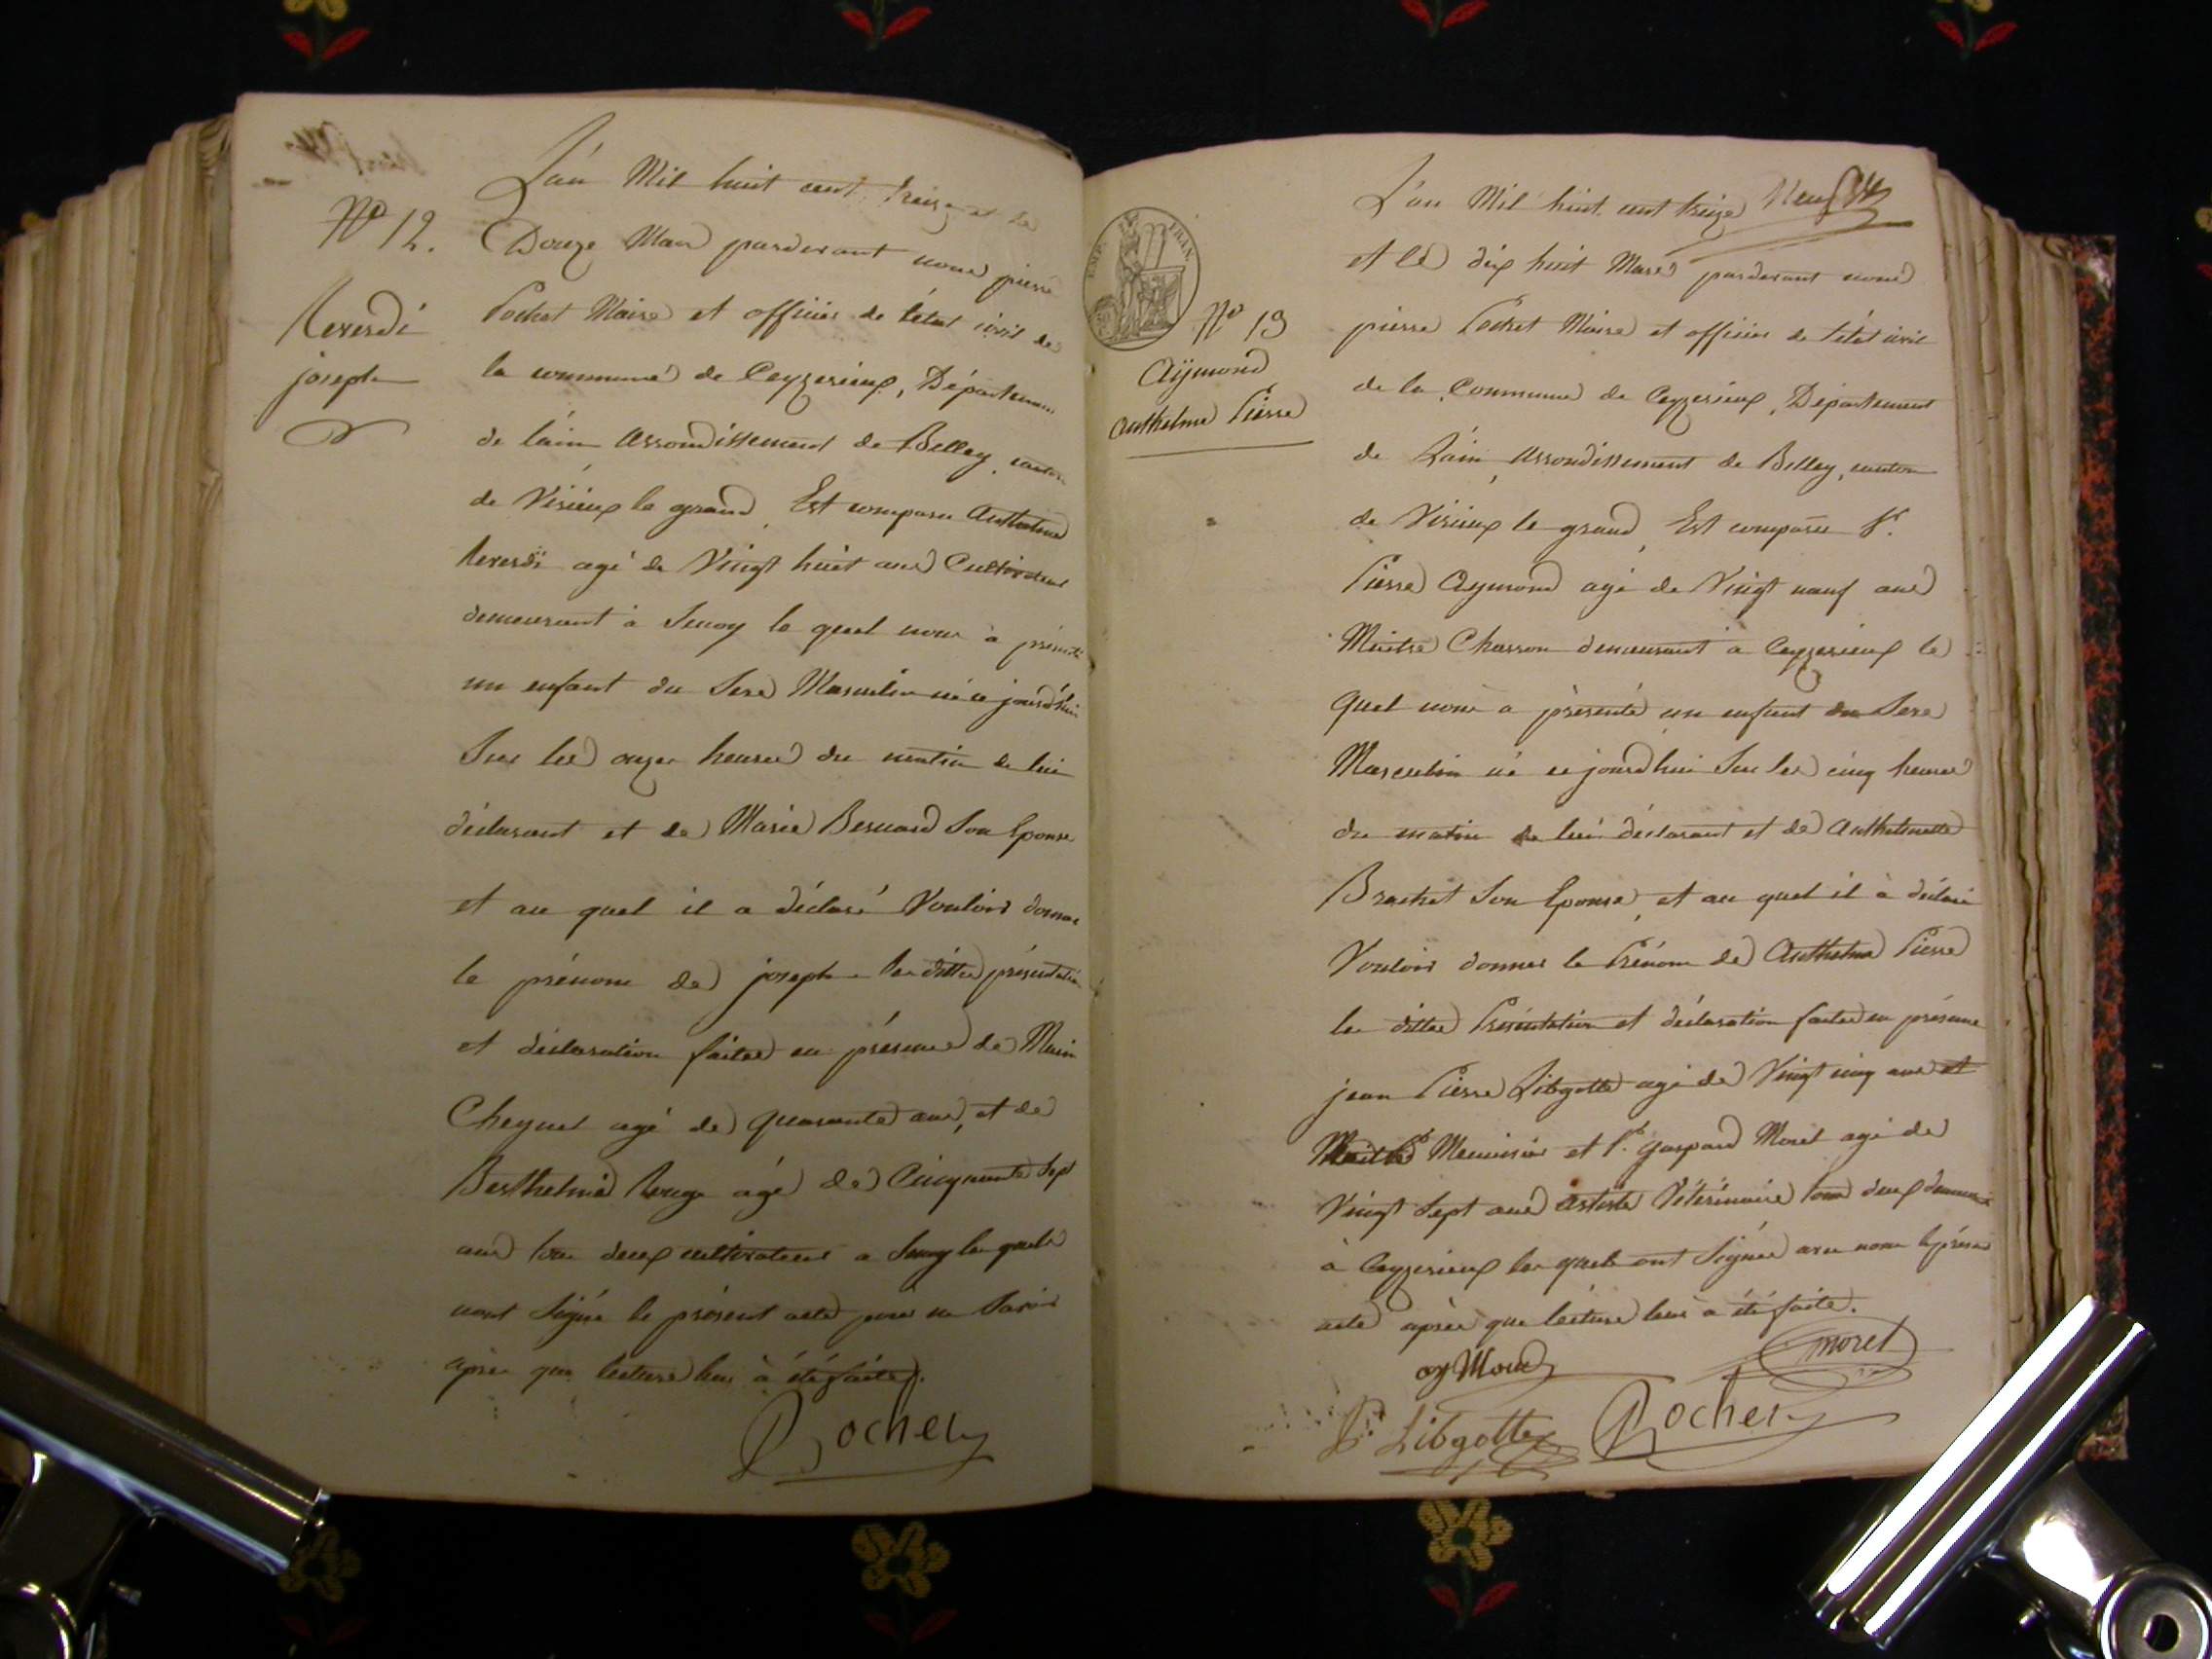 N° 12.
Reverdi
joseph
L'an Mil huit cent treize et le
Douze Mars pardevant nous pierre
Rochet Maire et officier de l'état civil de
la commune de Ceyzerieux, Département
de l'ain arrondissement de Belley, canton
de Virieux le grand, Est comparu Anthelme
Reverdi agé de Vingt huit ans Cultivateur
demeurant à le quel nous à présenté
un enfant du Sexe Masculin né ce jourd'hui
Sur les onze heures du matin de lui
déclarant et de Marie Bernard Son Epouse
et au quel il a déclaré Vouloir donner
le prénom de joseph les dittes présentation
et déclaration faites en présence de
agé de quarante ans, et de
Berthelmé Rouge agé de Cinquante Sept
ans tous deux cultivateurs a les quels
nont Signé le présent acte pour ne Savoir
après que lecture leur à été faite.
Rochet
EMP. FRAN.
N° 13
Aÿmond
Anthelme Pierre
L'an Mil huit cent treize Neuf
et le dix huit Mars pardevant nous
pierre Rochet Maire et officier de l'état civil
de la Commune de Ceyzerieux, Département
de L'ain, arrondissement de Belley, canton
de Virieux le grand, Est comparu Sr.
Pierre Aymond agé de Vingt neuf ans
Maitre Charron demeurant à Ceyzerieux le
quel nous a présenté un enfant du Sexe
Masculin né ce jourd'hui Sur les cinq heures
du matin de lui déclarant et de Anthelmette
Brachet Son Epouse, et au quel il à déclaré
Vouloir donner le Prénom de Anthelme Pierre
les dittes Présentation et déclaration faites en présence
jean Pierre Libgotte agé de Vingt cinq ans et
Menuisier et Sr. gaspard Morel agé de
Vingt Sept ans artiste Vétérinaire tous deux demeurant
à Ceyzerieux les quels ont Signés avec nous le présent
acte après que lecture leur à été faite.
ayMond
morel
Libgotte
Rochet